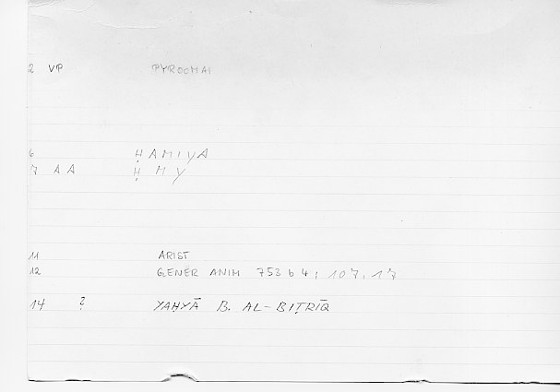 2 VP PYROOMAI
6 ḤAMIYA
7 AA ḤMY
11 ARIST
12 GENER ANIM 753 b 4; 107, 17
14 ? YAḤYĀ B. AL-BIṬRĪQ